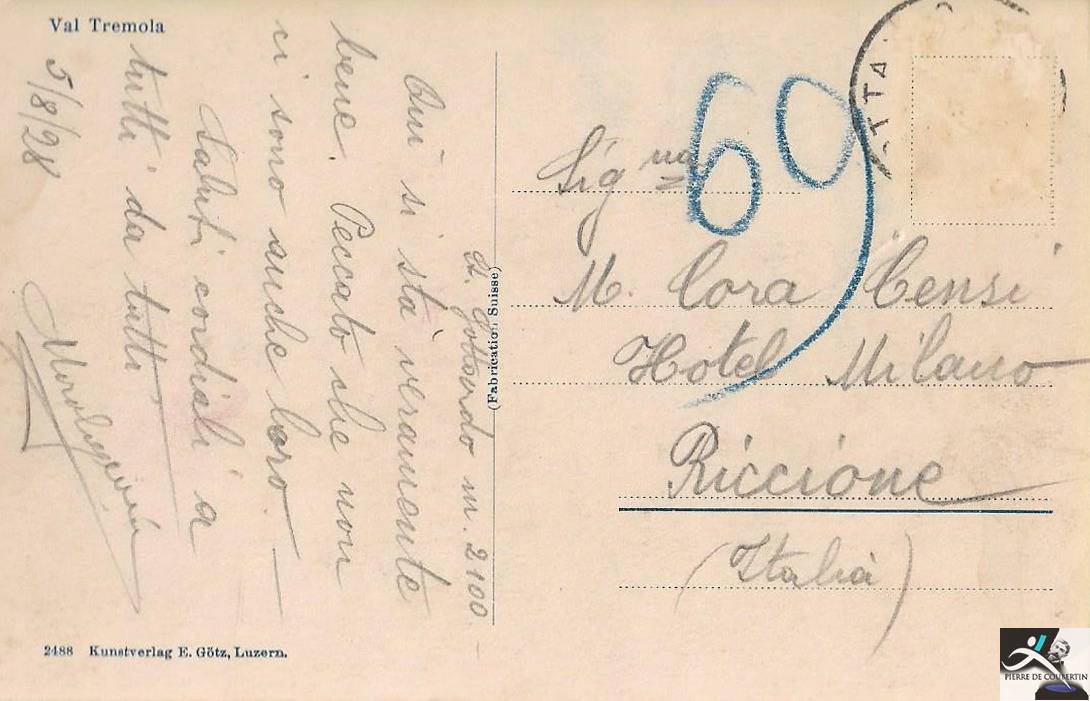 Val Tremola
G. Gottardo m. 2100
Qui si sta veramente
bene. Peccato che non
ci sono anche loro.
Saluti cordiali a
tutti da tutti
5/8/28
(Fabrication Suisse)
69
Sig.na
M. Cora Censi
Hotel Milano
Riccione
(Italia)
2488 Kunstverlag E. Götz, Luzern.
PIERRE DE COUBERTIN